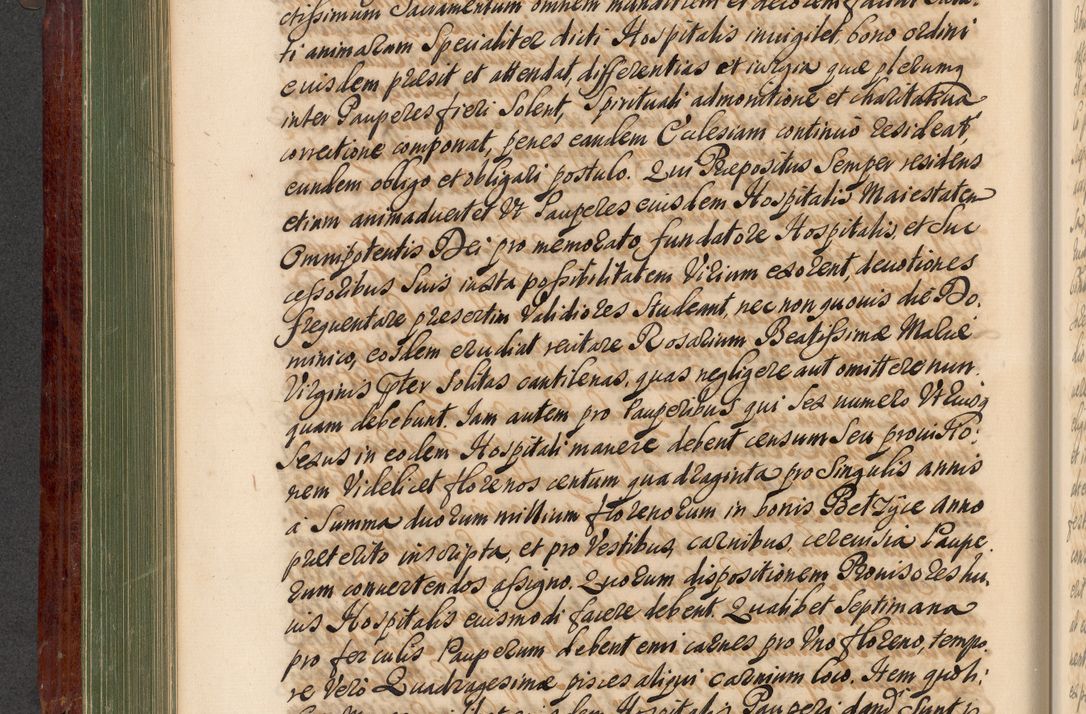 ctissimum Sacramentum omnem munditiem et decorem
ti animarum Specialiter dicti Hospitalis invigilet, bono ordini
eiusdem præsit et attendat, differentias et iurgia quæ plerumq
inter Pauperes fieri Solent, Spirituali admonitione et charitativa
correctione componat, penes eandem Ecclesiam continuò resideat,
eundem obligo et obligari postulo. Qui Præpositus Semper residens
etiam animadvertet Vt Pauperes eiusdem Hospitalis Maiestatem
Omnipotentis Dei pro memorato, fundatore Hospitalis, et Suc
cessoribus Suis iuxta possibilitatem Virium exorent, devotiones
frequentare præsertim Validiores Studeant, nec non quouis die Do.
minico, eosdem erudiat recitare Rosarium Beatissimæ Mariæ
Virginis præter Solitas cantilenas, quas negligere aut omittere nun.
quam debebunt. Iam autem pro Pauperibus qui Sex numero Vtriusq
Sexus in eodem Hospitali manere debent censum Seu provisio:
nem Videlicet florenos centum quadraginta pro Singulis annis
a Summa duorum millium florenorum in bonis Betzÿce anno
præterito inscripta, et pro Vestibus, carnibus, cerevisia Paupe.
rum convertendos assigno. Quorum dispositionem Provisores hu,
ius Hospitalis eiusmodi facere debent. Qualibet Septimana
pro ferculis Pauperum debent emi carnes pro Vno floreno, tempo,
re Verò Quadragesimæ pisces aliqui carnium loco. Item quoli:
Hospitalis Pauperi dand Sunt